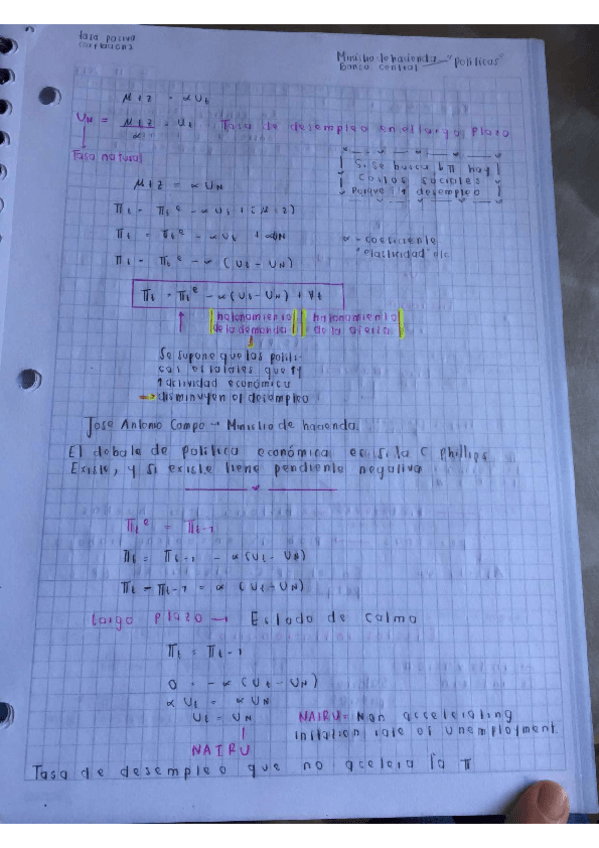 tasa pasiva
Ministro de hacienda → políticas
Banco central
μ+z = αUt
UN = μ+z/α = Ut Tasa de desempleo en el largo plazo
Tasa natural
Si se busca ↓π hay
costos sociales
Porque ↑ desempleo
μ+z = αUN
πt = πt^e - αUt + (μ+z)
πt = πt^e - αUt + αUN
πt = πt^e - α (Ut - UN)
α = coeficiente
πt = πt^e - α(Ut - UN) + Vt
halonamiento de la demanda
halonamiento de la oferta
Se supone que las políti-
cas estatales que
↑ actividad económica
→ disminuyen el desempleo
Jose Antonio Campo → Ministro de hacienda.
El debate de política económica es si la C Phillips
Existe, y si existe tiene pendiente negativa
πt^e = πt-1
πt = πt-1 - α(Ut - UN)
πt - πt-1 = α (Ut - UN)
Largo plazo → Estado de calma
πt = πt-1
0 = -α (Ut - UN)
αUt = αUN
Ut = UN
NAIRU = Non accelerating
inflation rate of unemployment.
NAIRU
Tasa de desempleo que no acelera la π